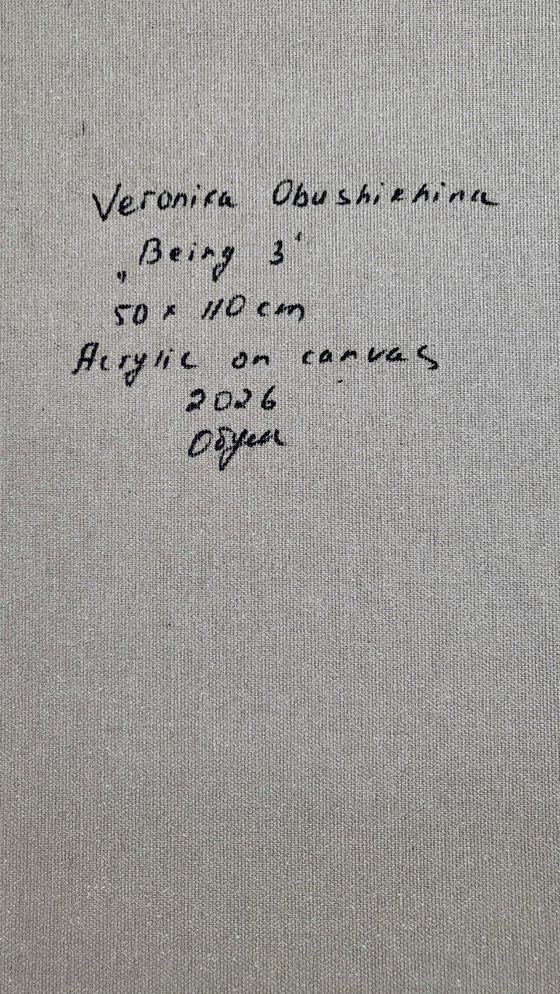 Veronica Obushikhina
„Being 3“
50 x 110 cm
Acrylic on canvas
2026